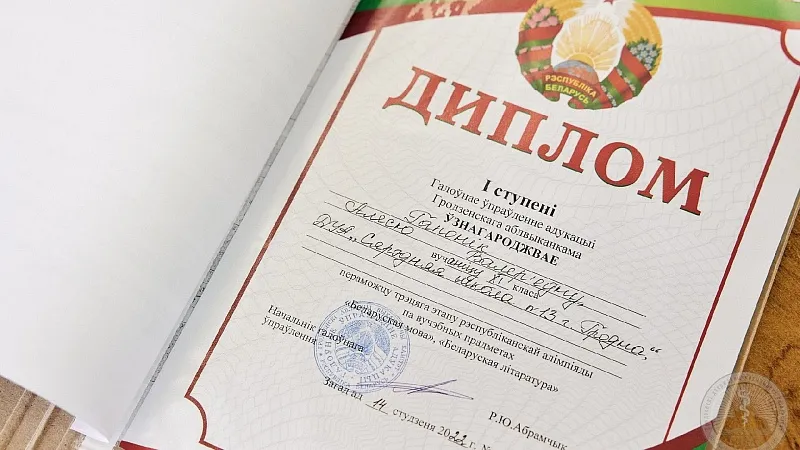 РЭСПУБЛІКА
БЕЛАРУСЬ
ДИПЛОМ
I ступені
Галоўнае ўпраўленне адукацыі
Гродзенскага аблвыканкама
ЎЗНАГАРОДЖВАЕ
Алесю Гапенік Валер'еўну,
вучаніцу XI класа
ДУА „Сярэдняя школа n 13 г. Гродна,"
пераможцу трэцяга этапу рэспубліканскай алімпіяды
па вучэбных прадметах
«Беларуская мова», «Беларуская літаратура»
Начальнік галоўнага
ўпраўлення
Р.Ю.Абрамчык
Загад ад 14 студзеня 2022 г. №